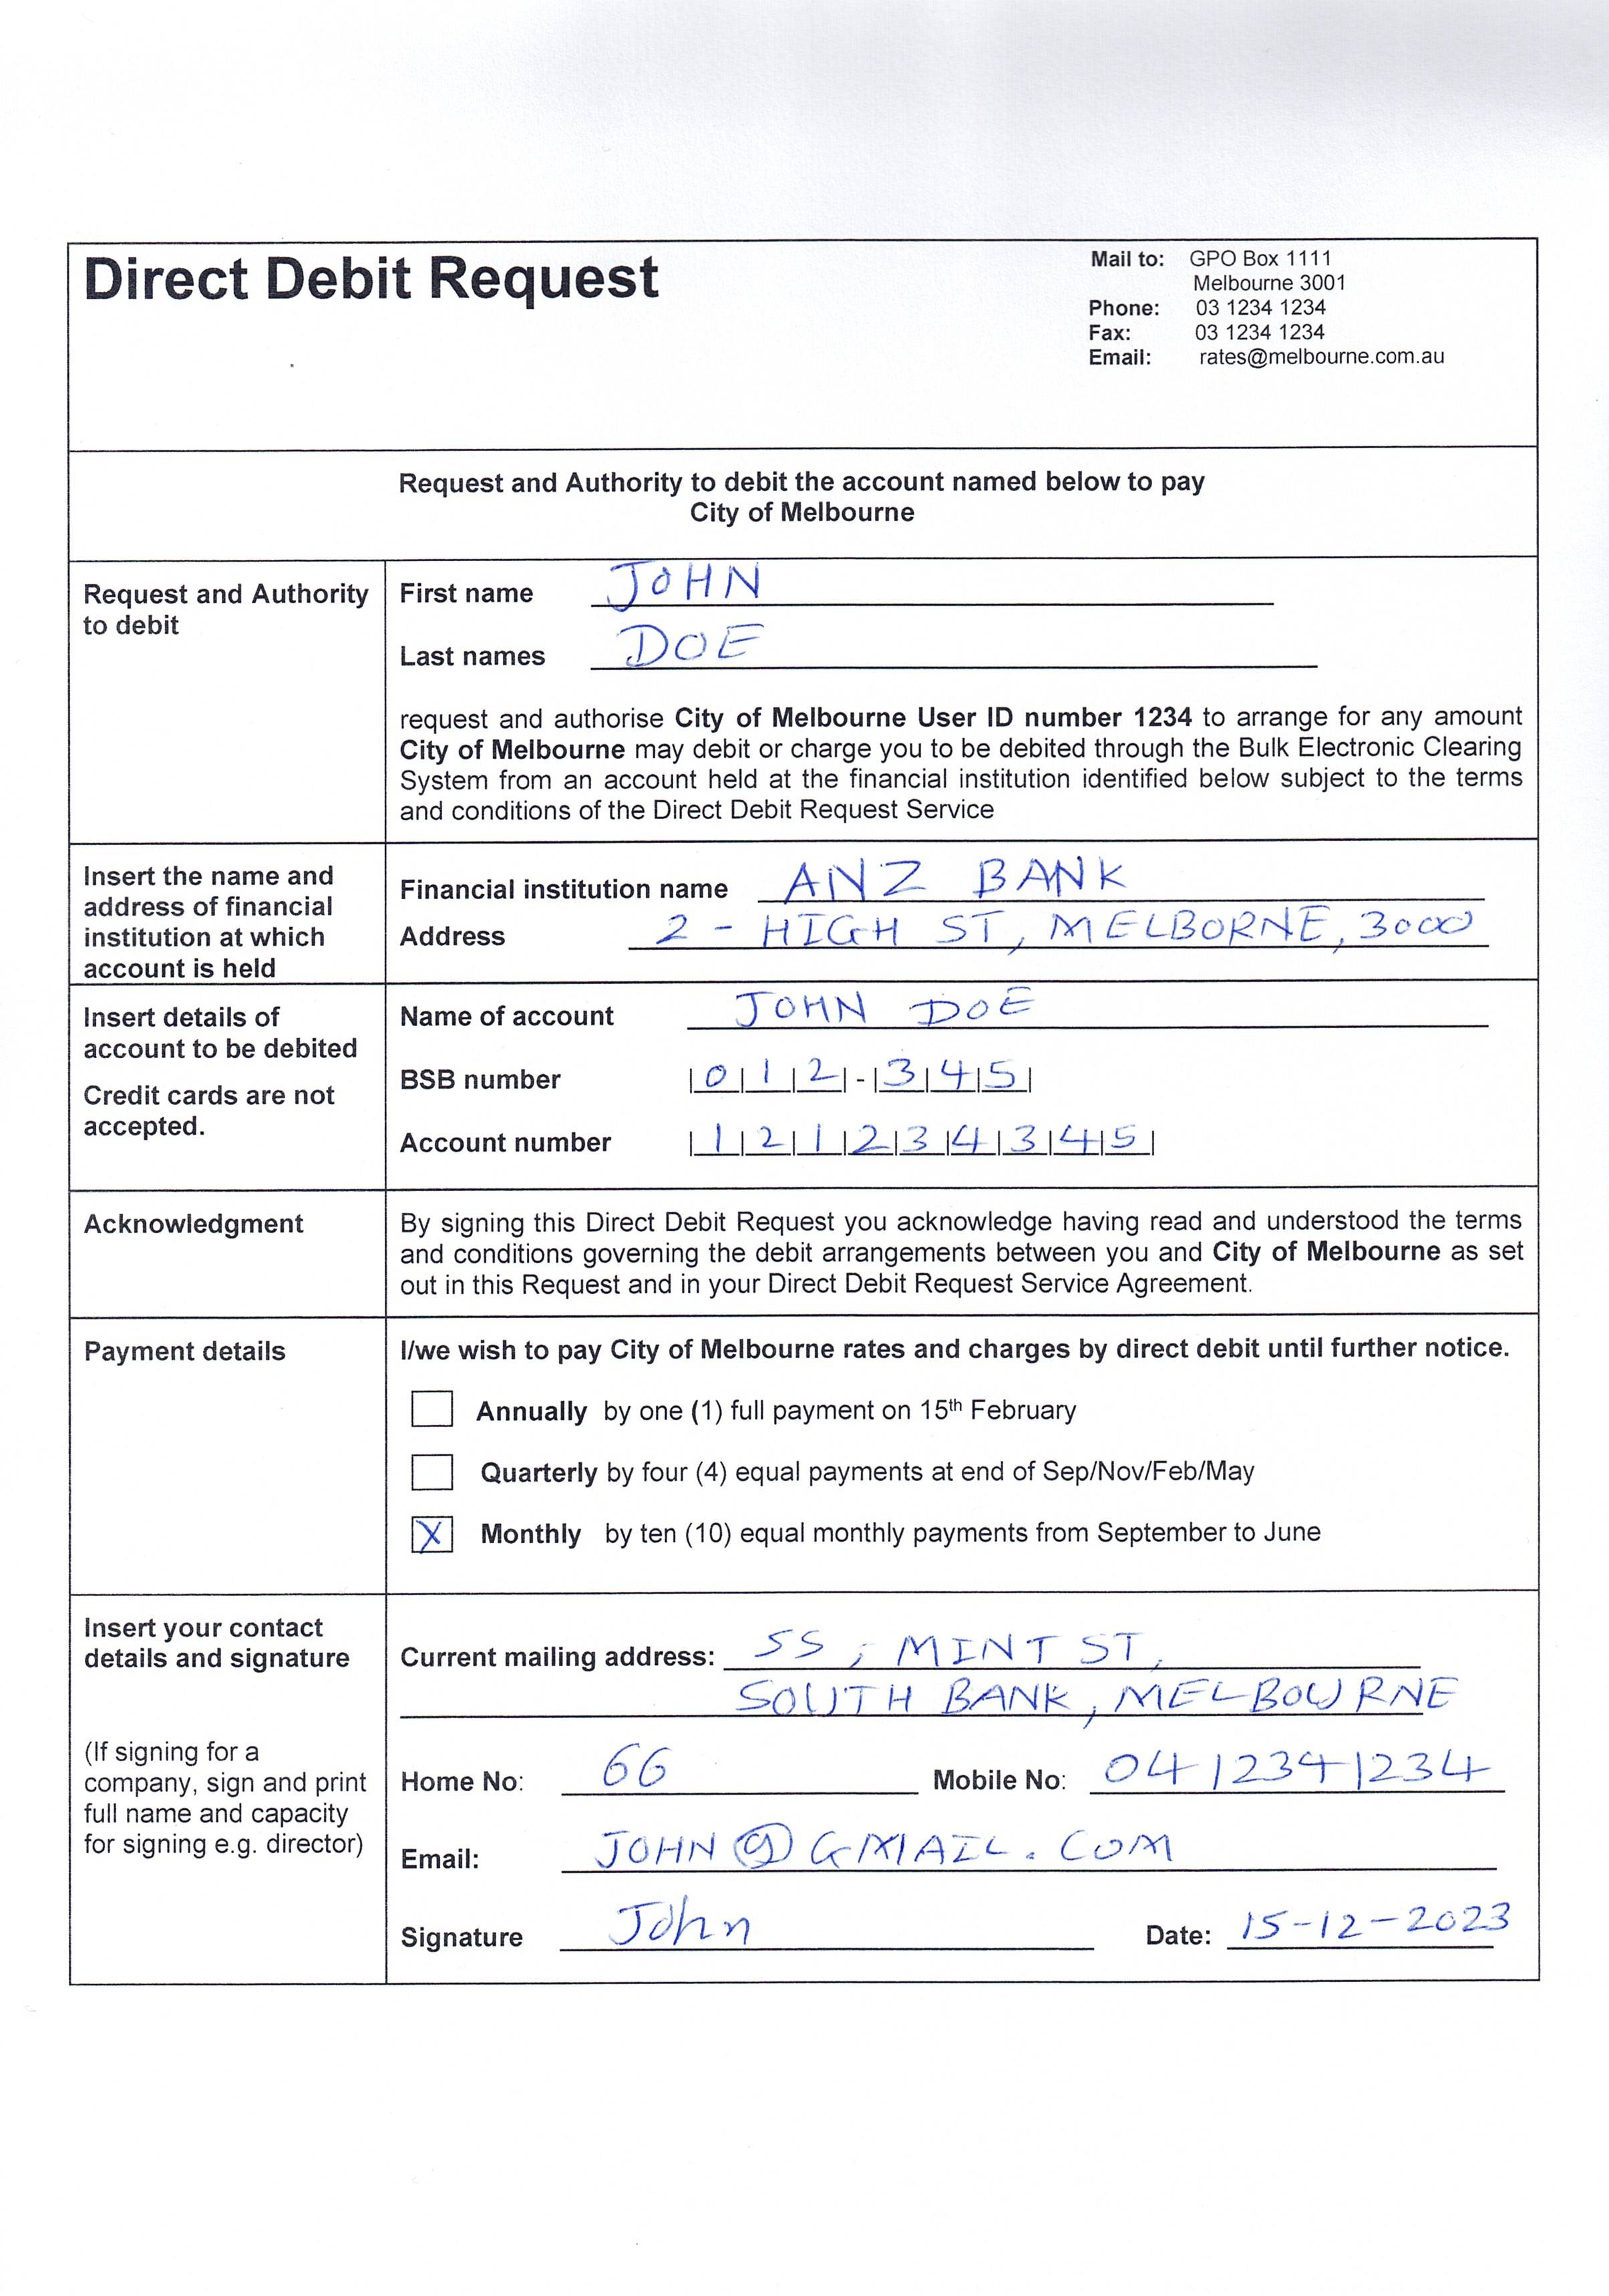 Direct Debit Request
Mail to: GPO Box 1111
Melbourne 3001
Phone: 03 1234 1234
Fax: 03 1234 1234
Email: rates@melbourne.com.au
Request and Authority to debit the account named below to pay
City of Melbourne
Request and Authority
to debit
First name JOHN
Last names DOE
request and authorise City of Melbourne User ID number 1234 to arrange for any amount
City of Melbourne may debit or charge you to be debited through the Bulk Electronic Clearing
System from an account held at the financial institution identified below subject to the terms
and conditions of the Direct Debit Request Service
Insert the name and
address of financial
institution at which
account is held
Financial institution name ANZ BANK
Address 2 - HIGH ST, MELBORNE, 3000
Insert details of
account to be debited
Credit cards are not
accepted.
Name of account JOHN DOE
BSB number |0|1|2|-|3|4|5|
Account number |1|2|1|2|3|4|3|4|5|
Acknowledgment
By signing this Direct Debit Request you acknowledge having read and understood the terms
and conditions governing the debit arrangements between you and City of Melbourne as set
out in this Request and in your Direct Debit Request Service Agreement.
Payment details
I/we wish to pay City of Melbourne rates and charges by direct debit until further notice.
Annually by one (1) full payment on 15th February
Quarterly by four (4) equal payments at end of Sep/Nov/Feb/May
X Monthly by ten (10) equal monthly payments from September to June
Insert your contact
details and signature
(If signing for a
company, sign and print
full name and capacity
for signing e.g. director)
Current mailing address: 55, MINT ST,
SOUTH BANK, MELBOURNE
Home No: 66 Mobile No: 0412341234
Email: JOHN@GMAIL.COM
Signature John Date: 15-12-2023